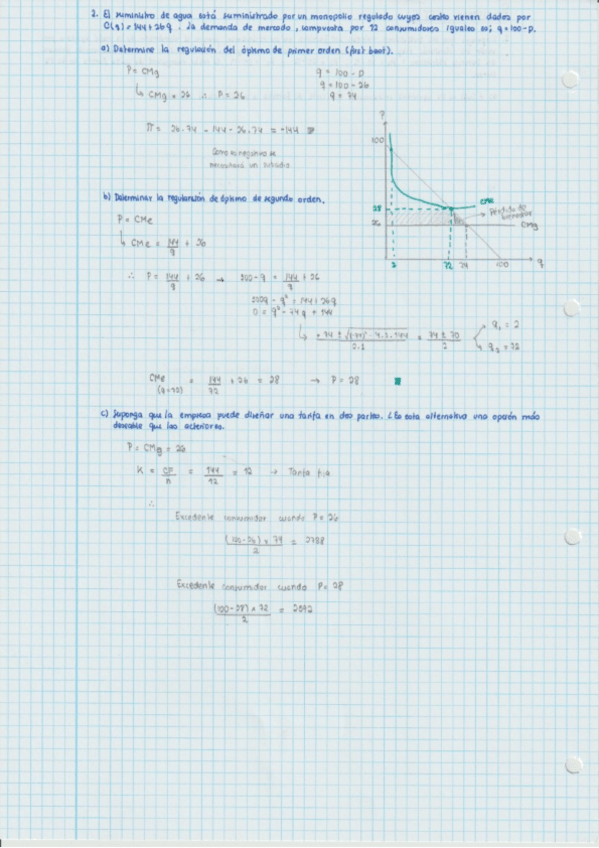 2. El suministro de agua está suministrado por un monopolio regulado cuyos costes vienen dados por
C(q) = 144 + 26q. La demanda de mercado, compuesta por 12 consumidores iguales es; q = 100 - P.
a) Determine la regulación del óptimo de primer orden (first best).
P = CMg
q = 100 - P
q = 100 - 26
q = 74
↳ CMg = 26 ∴ P = 26
π = 26·74 - 144 - 26·74 = -144
Como es negativo se
necesitará un subsidio.
P
100
28
26
CMe
Pérdida de
bienestar
CMg
2 72 74 100 q
b) Determinar la regulación de óptimo de segundo orden.
P = CMe
↳ CMe = 144/q + 26
∴ P = 144/q + 26 → 100 - q = 144/q + 26
100q - q² = 144 + 26q
0 = q² - 74q + 144
↳ +74 ± √(-74)² - 4·1·144 / 2·1 = 74 ± 70 / 2
q₁ = 2
q₂ = 72
CMe (q=72) = 144/72 + 26 = 28 → P = 28
c) Suponga que la empresa puede diseñar una tarifa en dos partes. ¿Es esta alternativa una opción más
deseable que las anteriores.
P = CMg = 26
K = CF/n = 144/12 = 12 → Tarifa fija
∴
Excedente consumidor cuando P = 26
(100-26) × 74 / 2 = 2738
Excedente consumidor cuando P = 28
(100-28) × 72 / 2 = 2592